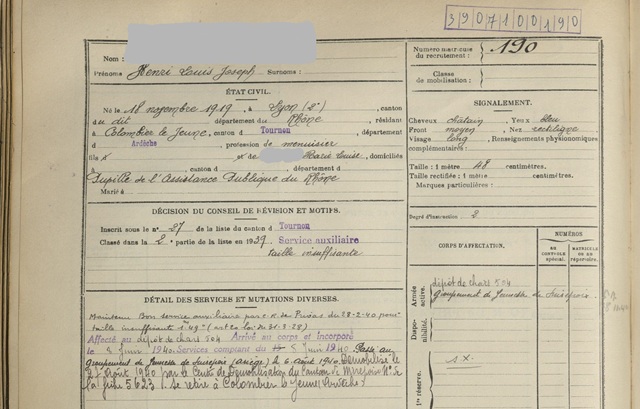 3907100190
Nom :
Prénoms Henri Louis Joseph Surnoms :
ÉTAT CIVIL.
Né le 18 novembre 1919, à Lyon (2e), canton
du dit, département du Rhône, résidant
à Colombier le Jeune, canton d Tournon, département
d Ardèche, profession de menuisier
fils x et de Marie Louise, domiciliés
à , canton d , département d
Pupille de l'Assistance Publique du Rhône
Marié à
DÉCISION DU CONSEIL DE RÉVISION ET MOTIFS.
Inscrit sous le n° 27 de la liste du canton d Tournon
Classé dans la 2e partie de la liste en 1939 Service auxiliaire
taille insuffisante
DÉTAIL DES SERVICES ET MUTATIONS DIVERSES.
Maintenu Bon service auxiliaire par c.R de Privas du 28-2-40 pour
taille insuffisante 1.49 (art 20 loi du 31-3-28)
Affecté au dépôt de chars 504 Arrivé au corps et incorporé
le 8 Juin 1940. Services comptant du 5 Juin 1940. Passé au
groupement de Jeunesse de (Ariège) le 6 Août 1940 Démobilisé le
Août 1940 par le Centre de Démobilisation du Canton de Mirepoix
la fiche 5623. Se retire à Colombier le Jeune (Ardèche)
Numéro matricule du recrutement : 190
Classe de mobilisation :
SIGNALEMENT.
Cheveux châtain Yeux bleu
Front moyen Nez rectiligne
Visage long Renseignements physionomiques
complémentaires :
Taille : 1 mètre 48 centimètres.
Taille rectifiée : 1 mètre centimètres.
Marques particulières :
Degré d'instruction 2
CORPS D'AFFECTATION.
NUMÉROS
AU CONTRÔLE spécial.
MATRICULE OU AU répertoire.
Armée active.
dépôt de chars 504
groupement de Jeunesse de
Disponibilité.
1re réserve.